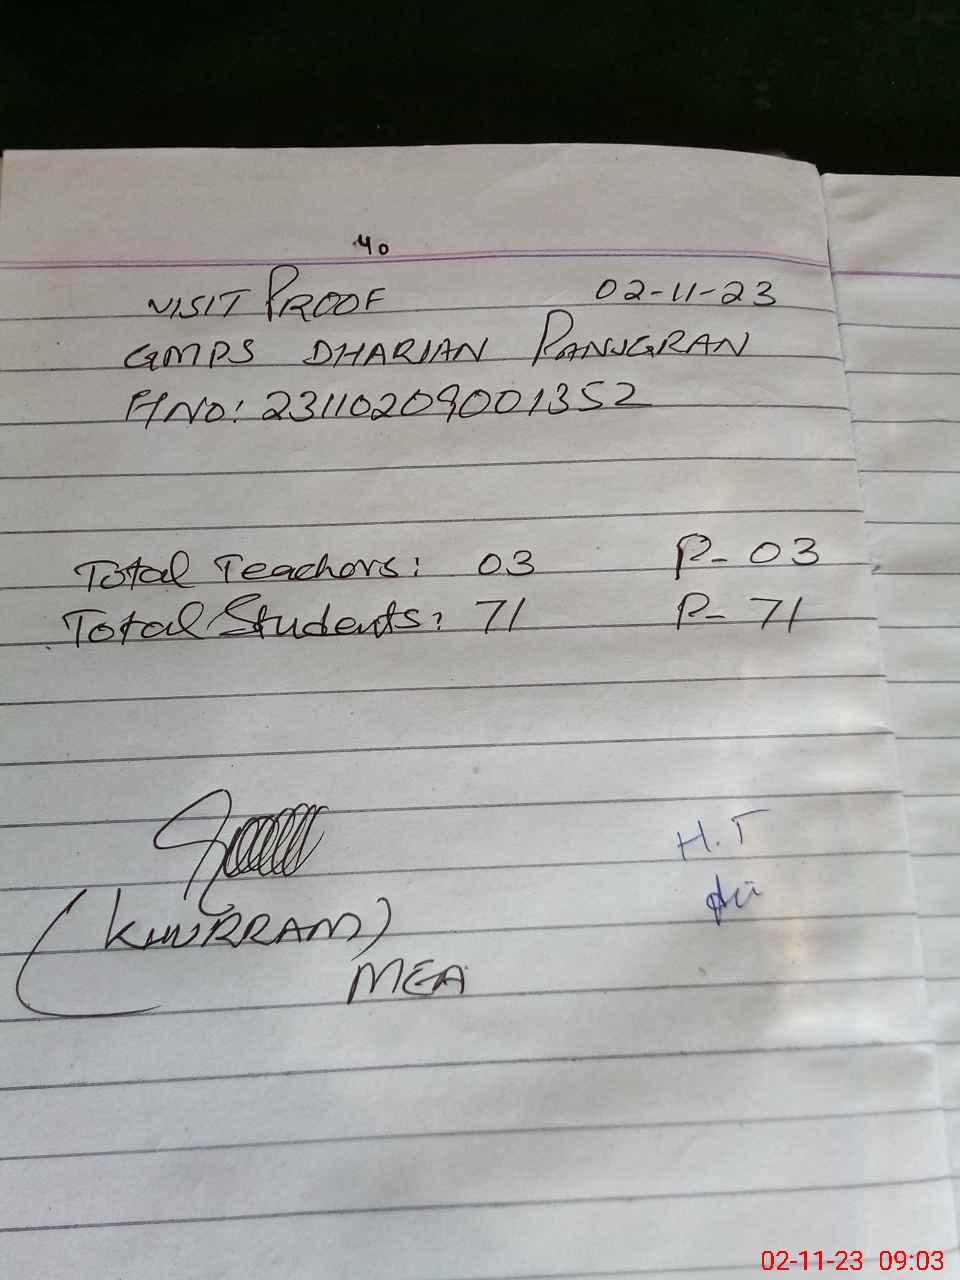 40
VISIT PROOF 02-11-23
GMPS DHARIAN PANJGRAN
FHNO: 23110209001352
Total Teachors: 03 P- 03
Total Students: 71 P- 71
H.T
(KHURRAM)
MEA
02-11-23 09:03